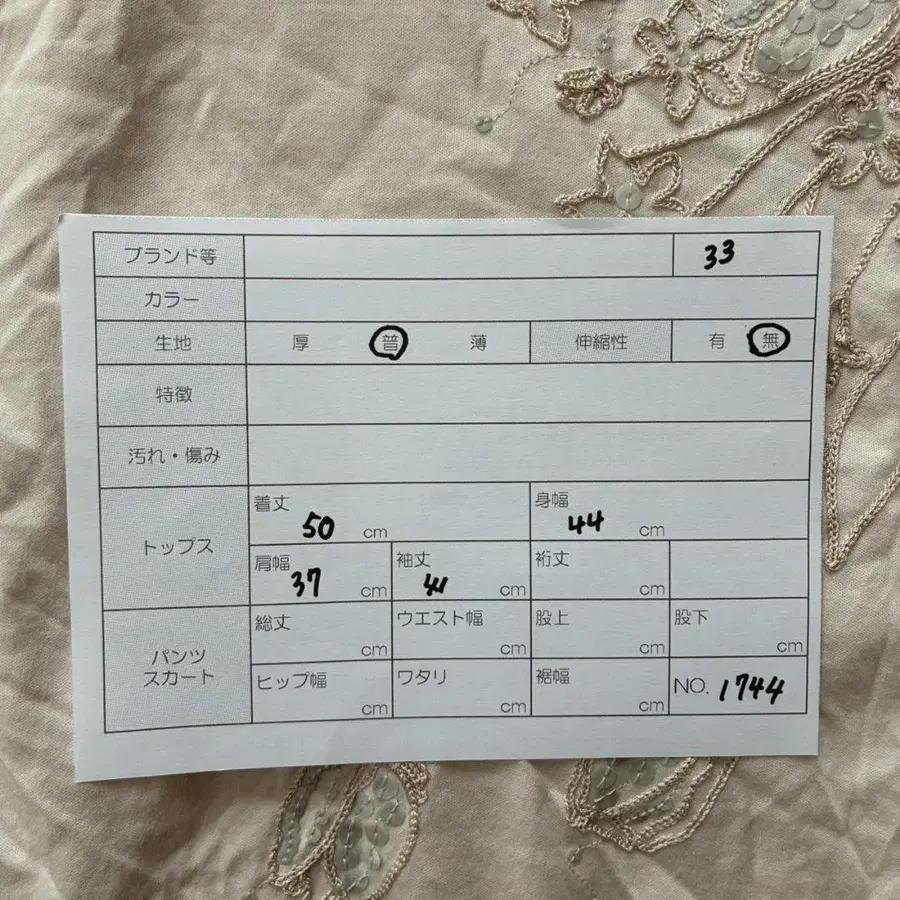 ブランド等 33
カラー
生地 厚 普 薄 伸縮性 有 無
特徴
汚れ・傷み
トップス
着丈 50 cm 身幅 44 cm
肩幅 37 cm 袖丈 cm 裄丈 cm
パンツ
スカート
総丈 cm ウエスト幅 cm 股上 cm 股下 cm
ヒップ幅 cm ワタリ cm 裾幅 cm NO. 1744